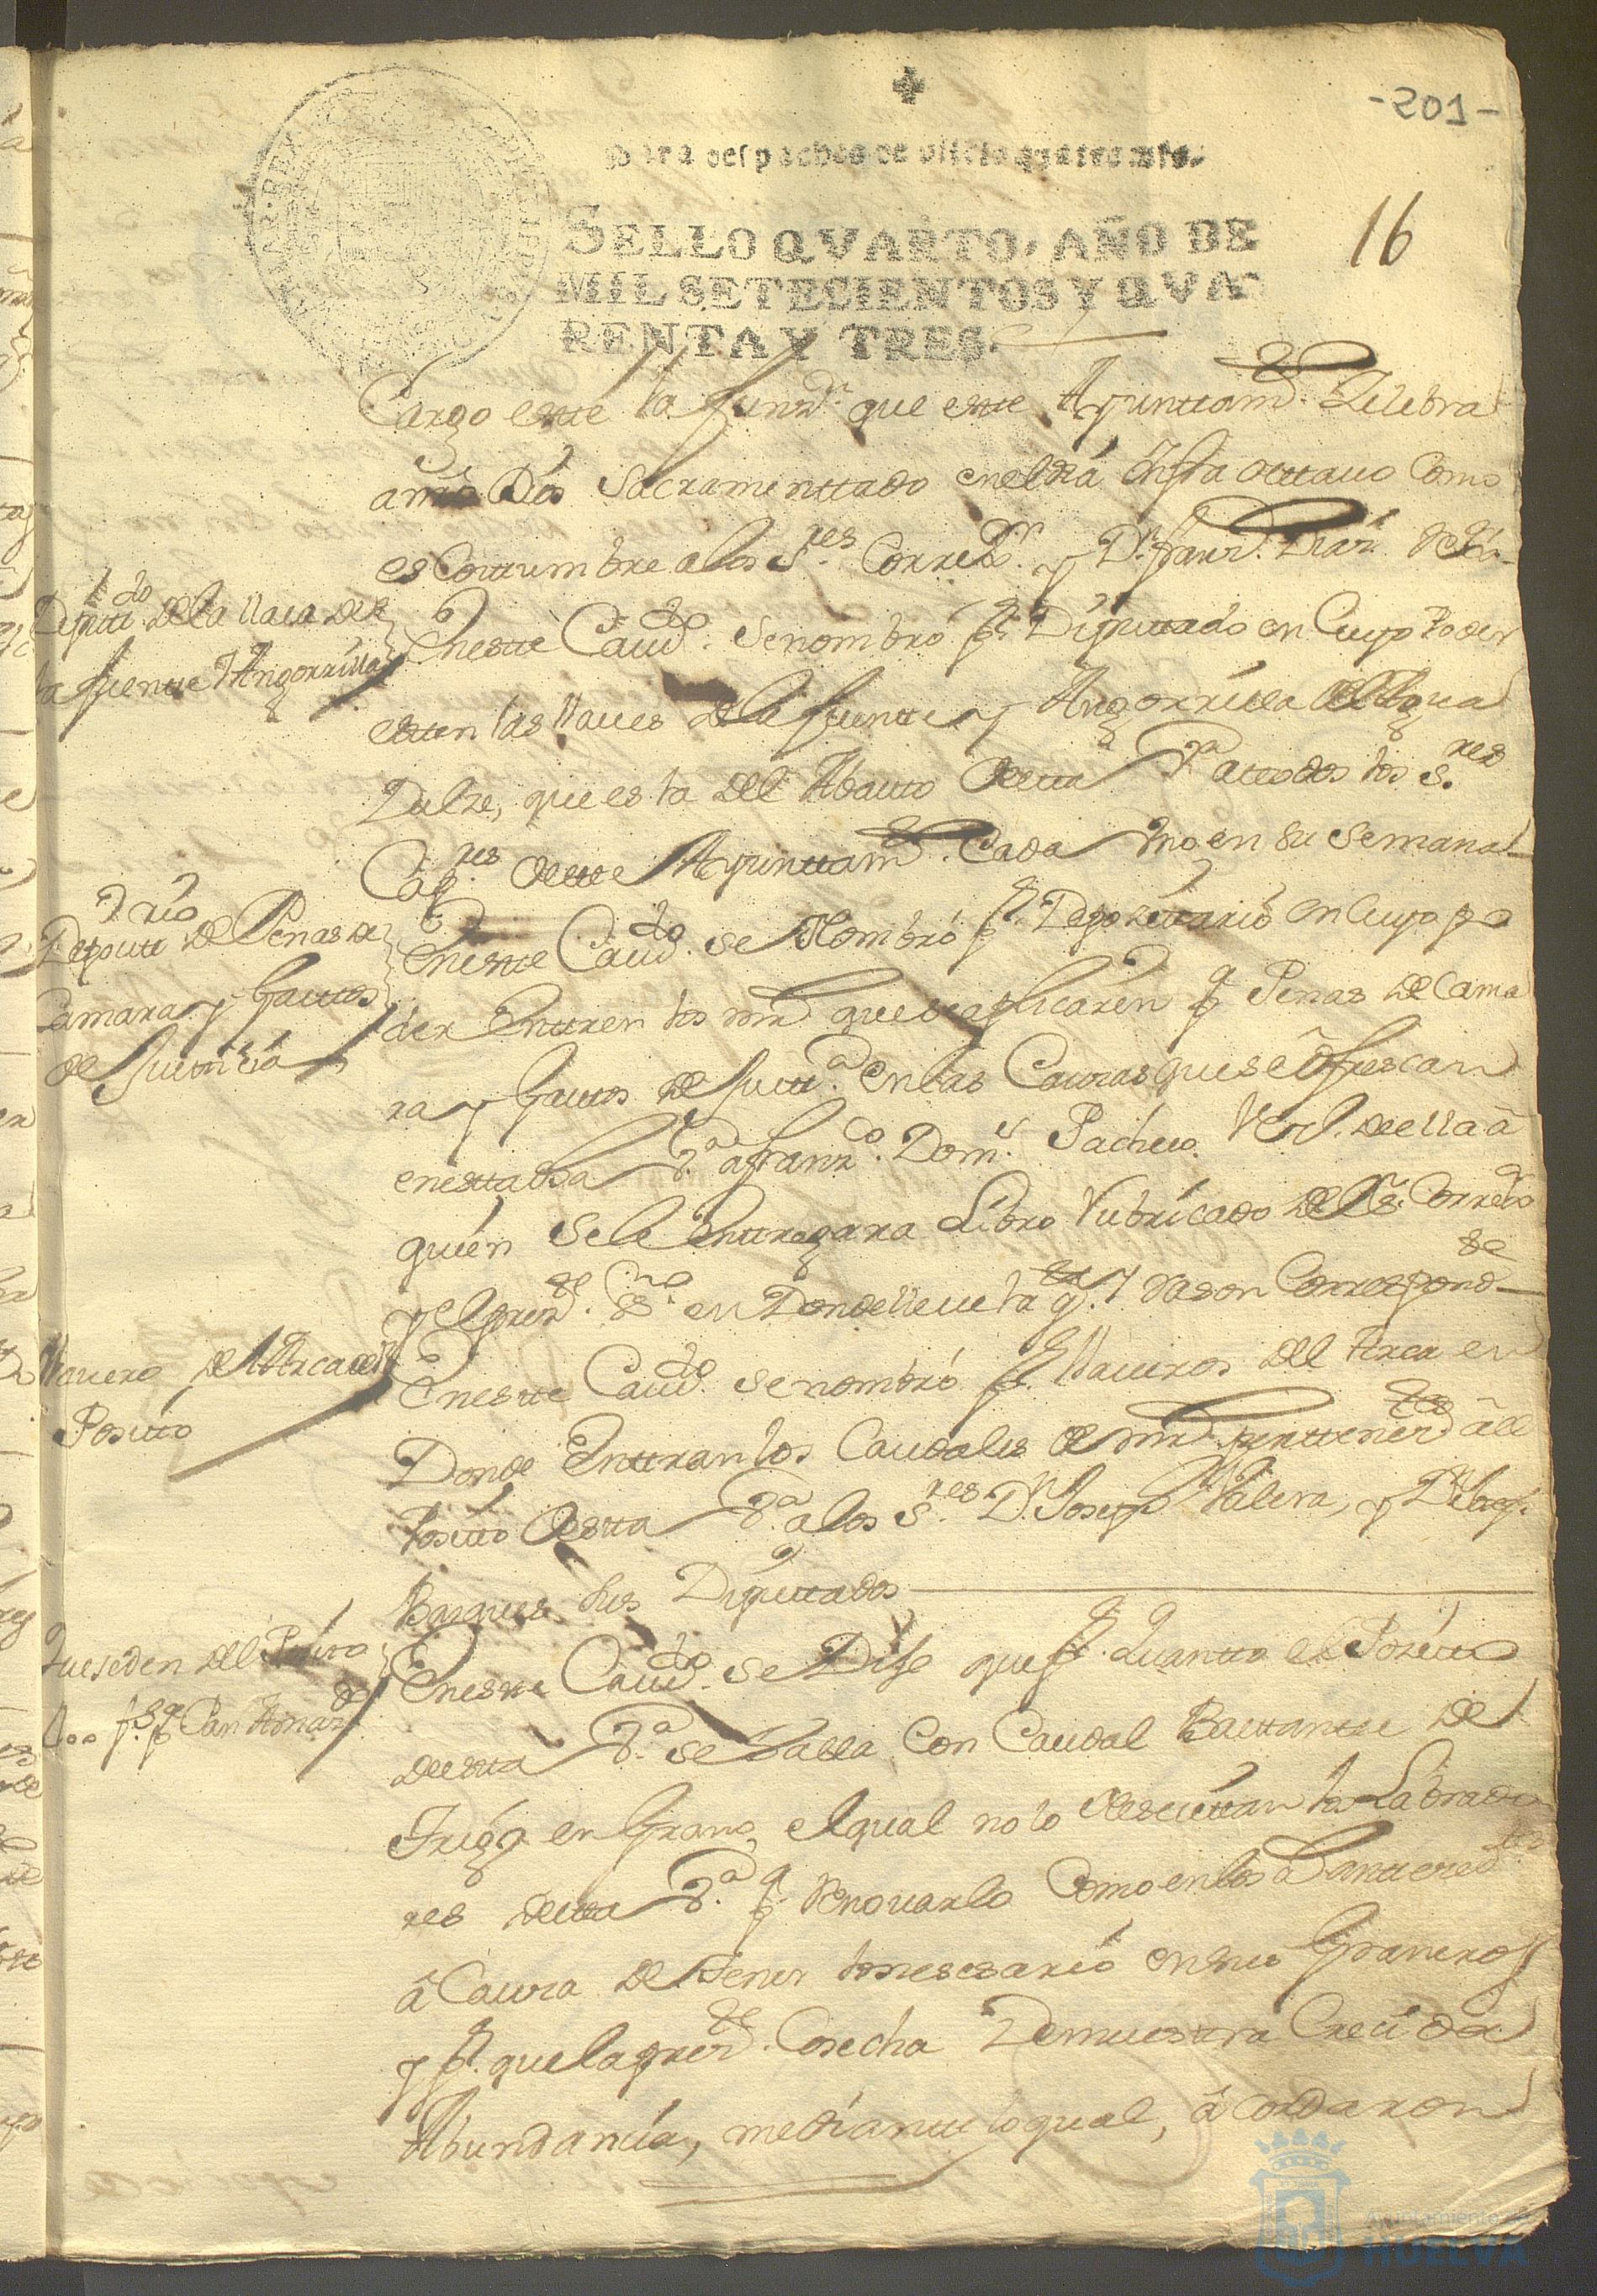 -201-
Para despachos de oficio quatro mrs.
16
SELLO QVARTO, AÑO DE
MIL SETECIENTOS Y QVA-
RENTA Y TRES.
Cargo este la funzn. que este Ayunttamto. Zelebra
a nro. Dios Sacramenttado en el dia Infra octtauo como
es Costtumbre a los Sres. Correxor. y Dn. Franco.
Diputtdo. de la llaue de
la fuentte y Angorrilla
En estte Caudo. se nombró pr. Diputtado en Cuyo Poder
esten las llaues de la fuentte y Angorrilla del Agua
Dulze, que es la del Abastto destta Va. a ttodos los Sres.
Capres. de estte Ayunttamto. Cada Vno en su Semana
Deposittrio de Penas de
Camara y Gasttos
de Justtizia
En estte Caudo. se Nombró pr. Deposittario en Cuyo po
der Enttren los mrs. que se aplicaren pa. Penas de Cama
ra y Gasttos de Justta. en las Causas que se ofrescan
en estta dha Va. a Franzco. Domz. Pacheco Vezo. de ella â
quien se le Enttregara Libro Rubricado del Sr. Correxor
y el prestte. Esno. en Donde lleue la qta. y rason Correspondte.
Llauero del Arca del
Positto
En estte Caudo. se nombró pr. llaueros del Arca en
Donde Enttran los Caudales de mrs. perttenezttes. â el
Positto de estta Va. a los Sres. Dn. Joseph Valera, y Dn. Josph.
Basques sus Diputtados
Que se den del Positto
fs. pa. Pan Amasdo.
En estte Caudo. se Dijo que pr. quantto el Positto
de estta Va. se halla con Caudal Basttantte de
Trigo en Grano, el qual no lo Nesesittan los Labrado
res destta Va. pa. Renouarlo Como en los
â Causa de ttener lo nesesario en sus Graneros
y pr. que la prestte. Cosecha Demuesttra Crecida
Abundancia, mediantte lo qual, âcordaron
Ayuntamiento de
HUELVA